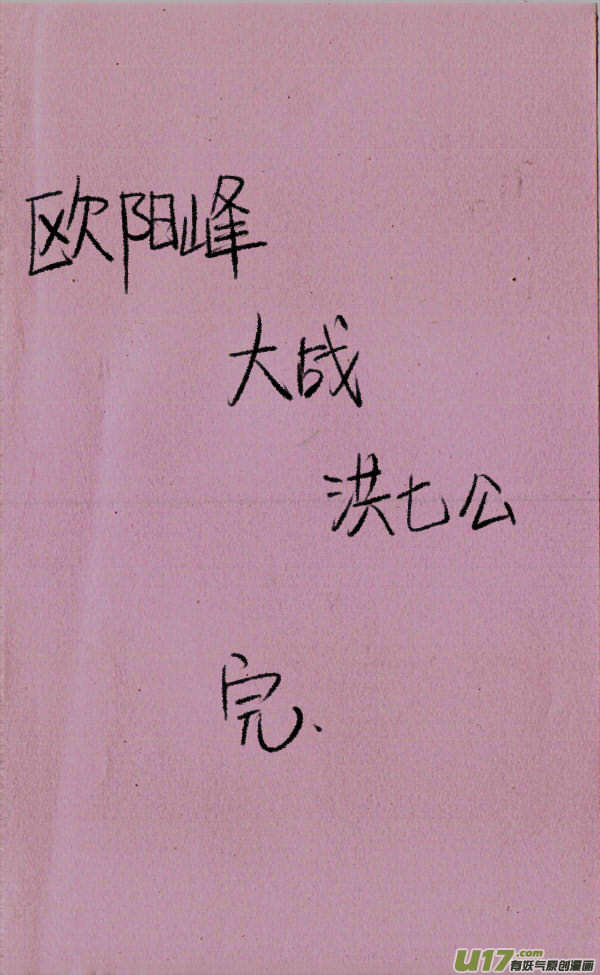 欧阳峰
大战
洪七公
完、
U17.com
有妖气原创漫画